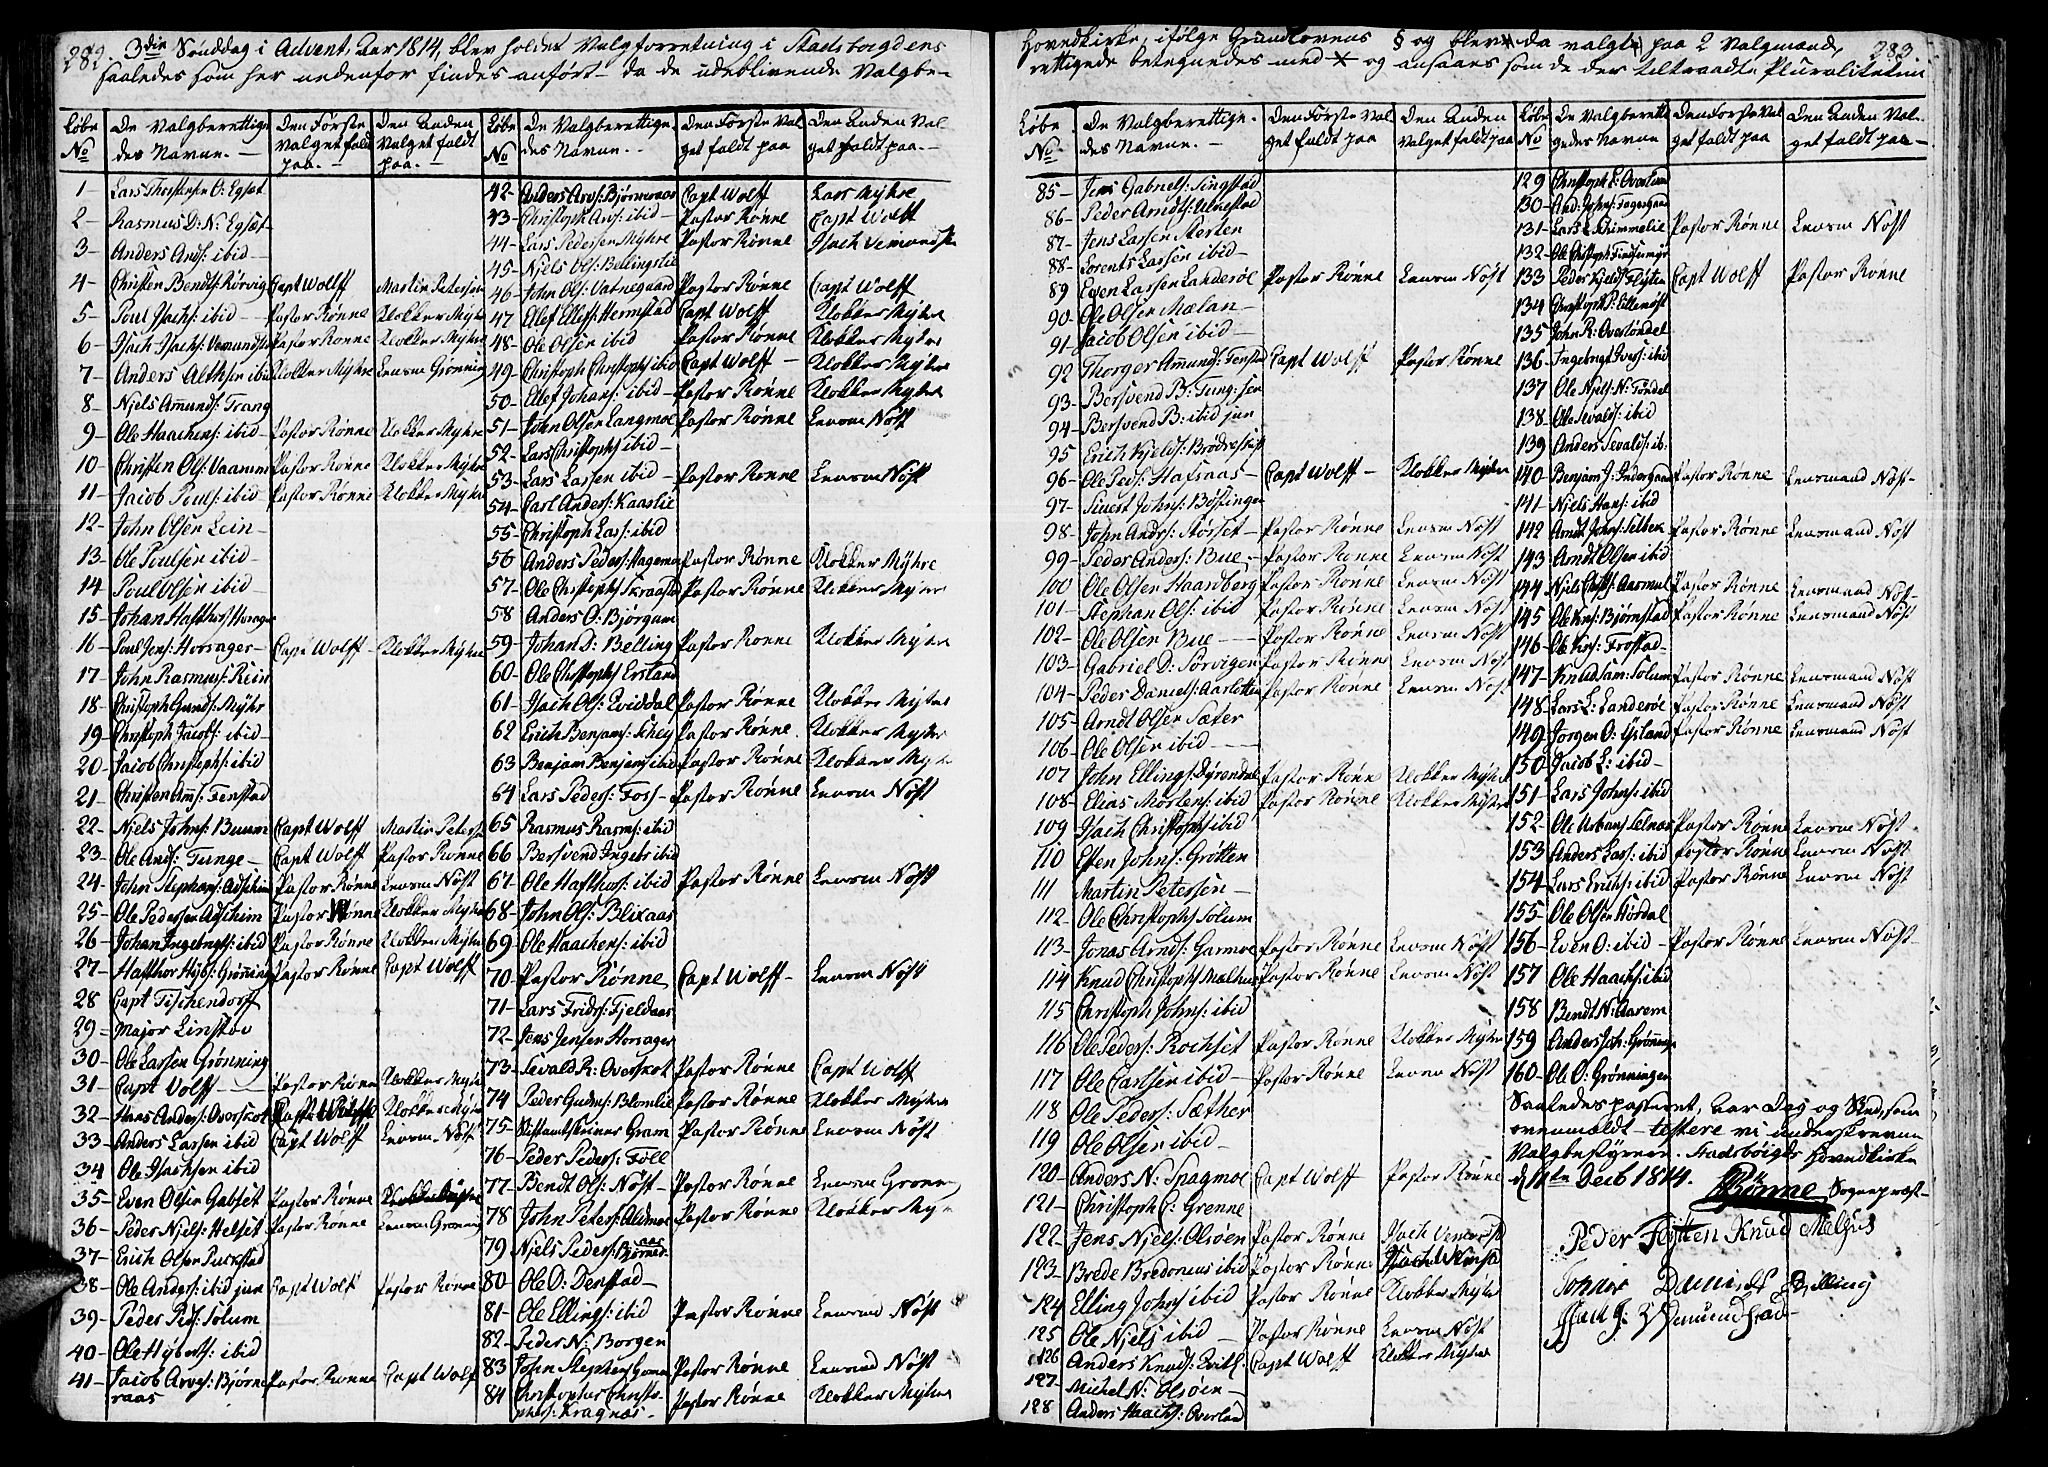 282. 3die Sönddag i Advent, Aar 1814, blev holdet Valgforretning i Stadsbøygdens
saaledes som her nedenfor findes anført – da de udeblivende Valgbe-
Løbe No | De Valgberettigedes Navne. | Den Første Valget faldt paa. | Den Anden Valget faldt paa.
1 – Lars Christensen O: Egset
2 – Rasmus D: N: Egset
3 – Anders Ands: ibid
4 – Christen Bendts: Rörvig | Capt Wolff | Martin Petersen
5 – Poul Isachs: ibid | Pastor Rønne | Klokker Myhre
6 – Isach Isachs: Vemundstad | Pastor Rønne | Klokker Myhre
7 – Anders ibid | Klokker Myhre | Lensm Grønning
8 – Njels Amunds: Trang
9 – Ole Haachens: ibid | Pastor Rønne | Klokker Myhre
10 – Christen Ols: Vaarum | Pastor Rønne | Klokker Myhre
11 – Jacob Pouls: ibid | Pastor Rønne | Klokker Myhre
12 – John Olsen Lein
13 – Ole Poulsen ibid
14 – Poul Olsen ibid
15 – Johan Hafthors: Horsager
16 – Poul Jens: Horsager | Capt Wolff | Klokker Myhre
17 – John Rasmus: Rein
18 – Christoph Gunds: Myhr
19 – Christoph Jacobs: ibid
20 – Jacob Christophs: ibid
21 – Christen Ams: Fenstad
22 – Njels Johns: Buum | Capt Wolff | Martin Peters:
23 – Ole Ands: Tunge | Capt Wolff | Pastor Rønne
24 – John Stephans: Adsheim | Pastor Rønne | Lensm Nöst
25 – Ole Pedersen Adsheim | Pastor Rønne | Klokker Myhre
26 – Johan Ingebrigts: ibid | Pastor Rønne | Klokker Myhre
27 – Hafthor Hybs: Grönning | Pastor Rønne | Capt Wolff
28 Capt Tischendorff
29 – Major Linstov
30 – Ole Larsen Grönning
31 – Capt Wolff | Pastor Rønne | Klokker Myhre
32 – Hans Anders: Overskot | Klokker Myhre
33 – Anders Larsen ibid | Capt Wolff | Lensm Nöst
34 – Ole Isachsen ibid
35 – Even Olsen Gabset | Pastor Rønne | Klokker Myhre
36 – Peder Njels: Helset | Pastor Rønne | Lensm Grönning
37 – Erich Olsen Purkstad
38 – Ole Anders: ibid jun | Capt Wolf | Pastor Rønne
39 – Peder Peds: Solum
40 – Ole Hybers: ibid
41 – Jacob Arvs: Björneraas | Pastor Rønne | Capt Wolf
Løbe No | De Valgberettigedes Navne. | Den Første Valget faldt paa | Den Anden Valget faldt paa.
42 – Anders Arvs: Bjørneraas | Capt Wolff | Lars Myhre
43 – Christoph Arvs: ibid | Pastor Rønne | Capt Wolff
44 – Lars Pedersen Myhre | Pastor Rønne | Isach Vemundst
45 – Njels Ols: Bellingslie
46 – John Ols: Vatnegaard | Pastor Rønne | Capt Wolff
47 Ellef Ellefs: Hermstad | Capt Wolff | Klokker Myhre
48 – Ole Olsen ibid | Pastor Rønne | Klokker Myhre
49 – Christoph Christophs ibid | Capt Wolff | Klokker Myhre
50 – Ellef Johans: ibid | Pastor Rønne | Klokker Myhre
51 – John Olsen Langmoe | Pastor Rønne | Lensm Nöst
52 – Lars Christophs ibid
53 – Lars Larsen ibid | Pastor Rønne | Lensm Nöst
54 – Carl Anders: Kaaslie
55 – Christoph Lars: ibid
56 Anders Peders: Hagem | Pastor Rønne | Klokker Myhre
57 – Ole Christophs Skraastad | Pastor Rønne | Klokker Myhre
58 Anders O: Bjørgum
59 – Johan D: Belling | Pastor Rønne | Klokker Myhre
60 – Ole Christophs Ersland
61 – Isach Ols: Qviddal | Pastor Rønne | Klokker Myhre
62 Erich Benjams: Schey | Pastor Rønne | Klokker Myhre
63 Benjam Benjams ibid | Pastor Rønne | Klokker Myhre
64 Lars Peders: Foss | Pastor Rønne | Lensm Nöst
65 Rasmus Rasms: ibid
66 Bersvend Ingebr: ibid
67 – Ole Hafthors: ibid | Pastor Rønne | Lensm Nöst
68 – John Ols: Blixaas
69 – Ole Haachens: ibid
70 – Pastor Rønne | Capt Wolff | Lensm Nöst
71 – Lars Frids: Fjeldaas
72 – Jens Jensen Horsager
73 – Sevald R: Overskot | Pastor Rønne | Capt Wolff
74 Peder Gudms: Blomlie | Pastor Rønne | Klokker Myhre
75 – Gram | Pastor Rønne | Lensm Nöst
76 – Peder Peders:Föll
77 – Bendt Ols: Nöst | Pastor Rønne | Lensm Grønning
78 John Peters: Aldmoe | Pastor Rønne | Klokker My
79 Njels Peders: Björneraas
80 – Ole O: Denstad
81 – Ole Ellings: ibid | Pastor Rønne | Lensmd Nöst
82 – Peder N: Borgen
83 John Stephens Gram | Pastor Rønne | Lensmd Nöst
84 Christopher Christophers: Kragnæs | Pastor Rønne | Klokker Myhre
Hovedkirke, ifølge Grundlovens § og blev da valgte paa 2 Valgmænd, 283
rettigede betegnedes med × og ansaaes som de der tiltraadte Pluraliteten
Løbe No | De Valgberettigedes Navne. | Den Første Valget faldt paa | Den Anden Valget faldt paa
85 – Jens Gabriels: Singstad
86 – Peder Arndts: Udnestad
87 – Jens Larsen Sterten
88 – Lorents Larsen ibid
89 Even Larsen Landeröe | Pastor Rønne | Lensm Nöst
90 – Ole Olsen Mælan
91 – Jacob Olsen ibid
92 Thorger Amunds: Fenstad | Capt Wolff | Pastor Rønne
93 – Bersvend B: Tung: sen
94 – Bersvend B: ibid jun
95 Erich Kjelds: Brödreskift
96 – Ole Peds: Hafsaas | Capt Wolff | Klokker Myhre
97 – Siuest Johns: Bösingen
98 – John Andrs: Störset | Pastor Rønne | Lensm Nöst
99 – Peder Anders: Bue | Pastor Rønne | Lensm Nöst
100 Ole Olsen Haarberg | Pastor Rønne | Lensm Nöst
101 – Stephan Ols: ibid | Pastor Rønne | Lensm Nöst
102 – Ole Olsen Bue | Pastor Rønne | Lensm Nöst
103 – Gabriel D: Sörvigen | Pastor Rønne | Lensm Nöst
104 – Peder Daniels: Aarlotten | Pastor Rønne | Lensm Nöst
105 – Arndt Olsen Sæter
106 – Ole Olsen ibid
107 John Ellings: Dyrendal | Pastor Rønne | Klokker Myhre
108 – Elias Mortens: ibid | Pastor Rønne | Klokker Myhre
109 Isach Christophs ibid
110 Esten Johns: Grötten
111 Martin Petersen
112 – Ole Christophs Solum
113 – Jonas Arnds: Garmoe | Pastor Rønne | Lensm Nöst
114 Knud Christophs Mælhuus | Pastor Rønne | Lensm Nöst
115 Christoph Johns: ibid
116 Ole Peders: Rochset | Pastor Rønne | Klokker Myhre
117 Ole Carlsen ibid | Pastor Rønne | Lensm Nöst
118 Ole Peders: Sæther
119 Ole Olsen ibid
120 – Anders N: Spagmoe | Capt Wolff | Pastor Rønne
121 – Christoph C: Grenne
122 – Jens Njels: Olsöen | Pastor Rønne | Isach Vemundst
123 – Brede Bredonius ibid | Pastor Rønne
124 Elling Johns ibid | Pastor Rønne | Klokker Myhre
125 Ole Njels ibid | Pastor Rønne | Lensm Nöst
126 Anders Knuds: Qvith: | Capt Wolff | Klokker Myhre
127 – Michel N: Olsöen
128 – Anders Haachs: Overland
Løbe No | De Valgberettigedes Navne | Den Første Valget faldt paa | Den Anden Valget faldt paa
129 Christoph L: Overland
130 – And: Johns: Fagergaard
131 – Lars L: Schimmelie | Pastor Rønne | Lensm Nöst
132 – Ole Christoph:
133 Peder Kjelds: Flyten | Capt Wolff | Pastor Rønne
134 Christoph P:
135 John R: Overlöndal
136 – Ingebrigt Ivers: ibid
137 Ole Njels: N: Töndel
138 – Ole Sevalds: ibid
139 Anders Sevalds: ib.
140 – Benjam J: Indergaard | Pastor Rønne | Lensmand Nöst
141 – Njels Hans: ibid
142 Arndt Johns: Selbek | Pastor Rønne | Lensmand Nöst
143 – Arndt Olsen ibid
144 – Njels Christ: Aasmul | Pastor Rønne | Lensmand Nöst
145 Ole Krs: Bjørnstad | Pastor Rønne | Lensmand Nöst
146 – Ole Krs: Fröstad
147 – Knud Sam: Solum | Pastor Rønne | Lensmand Nöst
148 – Lars L: Landeröe | Pastor Rønne | Lensmand Nöst
149 Jørgen O: Ysland | Pastor Rønne | Lensmand Nöst
150 Jacob L: ibid
151 – Lars Johns: ibid
152 – Ole Urbans Selnæs | Pastor Rønne | Lensm Nöst
153 – Anders Lars: ibid | Pastor Rønne | Lensm Nöst
154 – Lars Erichs: ibid | Pastor Rønne | Lensm Nöst
155 – Ole Olsen Hördal
156 – Even O: ibid | Pastor Rønne | Lensm Nöst
157 Ole Haachs: ibid
158 – Bendt N: Aarem
159 Anders Joh: Grönning
160 – Ole O: Grønningen
Saaledes passeret, Aar Dag og Sted, som
ovenmældt – testere vi underskrevne
Valgbestyrere. Stadsböigts Hovedkirke
d 11te Decb 1814. Rønne Sognepræst
Peder Flÿtten Knud Melhus
Johan Daniels Belling
Isack J: Vemundstad